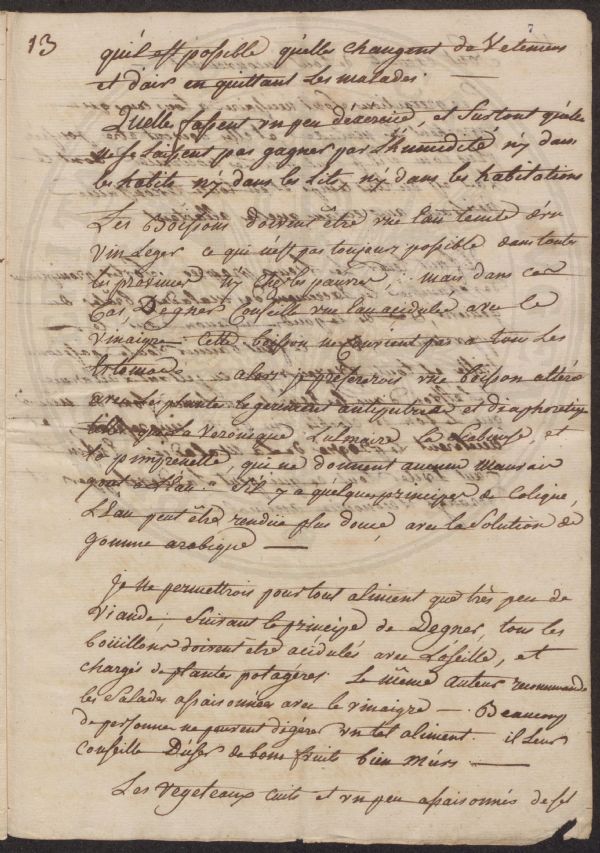 13
7
qu'il est possible qu'elles changent de Vetemens
et d'air en quittant les malades. —
Quelles fassent un peu d'exercice, et surtout qu'elles
ne se laissent pas gagner par l'humidité n'y dans
les habits n'y dans les lits, n'y dans les habitations
Les Boissons doivent être une Eau teinte d'un
Vin Leger ce qui n'est pas toujours possible dans toutes
les provinces n'y chez les pauvres, mais dans ce
Cas, Degner Conseille une Eau acidulée avec le
Vinaigre Cette boisson ne Convient pas a tous les
Estomacs alors je prefererois une boisson alterée
avec les plantes legerement antiputrides et diaphoretiques
telles que la Veronique L'ulmaire la et
la pimprenelle, qui ne donnent aucun mauvais
gout a l'Eau. S'il y a quelques principes de Colique,
L'Eau peut être rendüe plus douce, avec la Solution de
gomme arabique —
Je ne permettrois pour tout aliment que très peu de
Viande, Suivant le principe de Degner, tous les
boüillons doivent etre acidulés avec L'oseille, et
chargés de plantes potagéres. Le même auteur recommande
les Salades assaisonnées avec le vinaigre — Beaucoup
de personnes ne peuvent digérer un tel aliment. il leur
Conseille D'user de bons fruits bien mûrs —
Les Vegeteaux cuits et un peu assaisonnés de sel